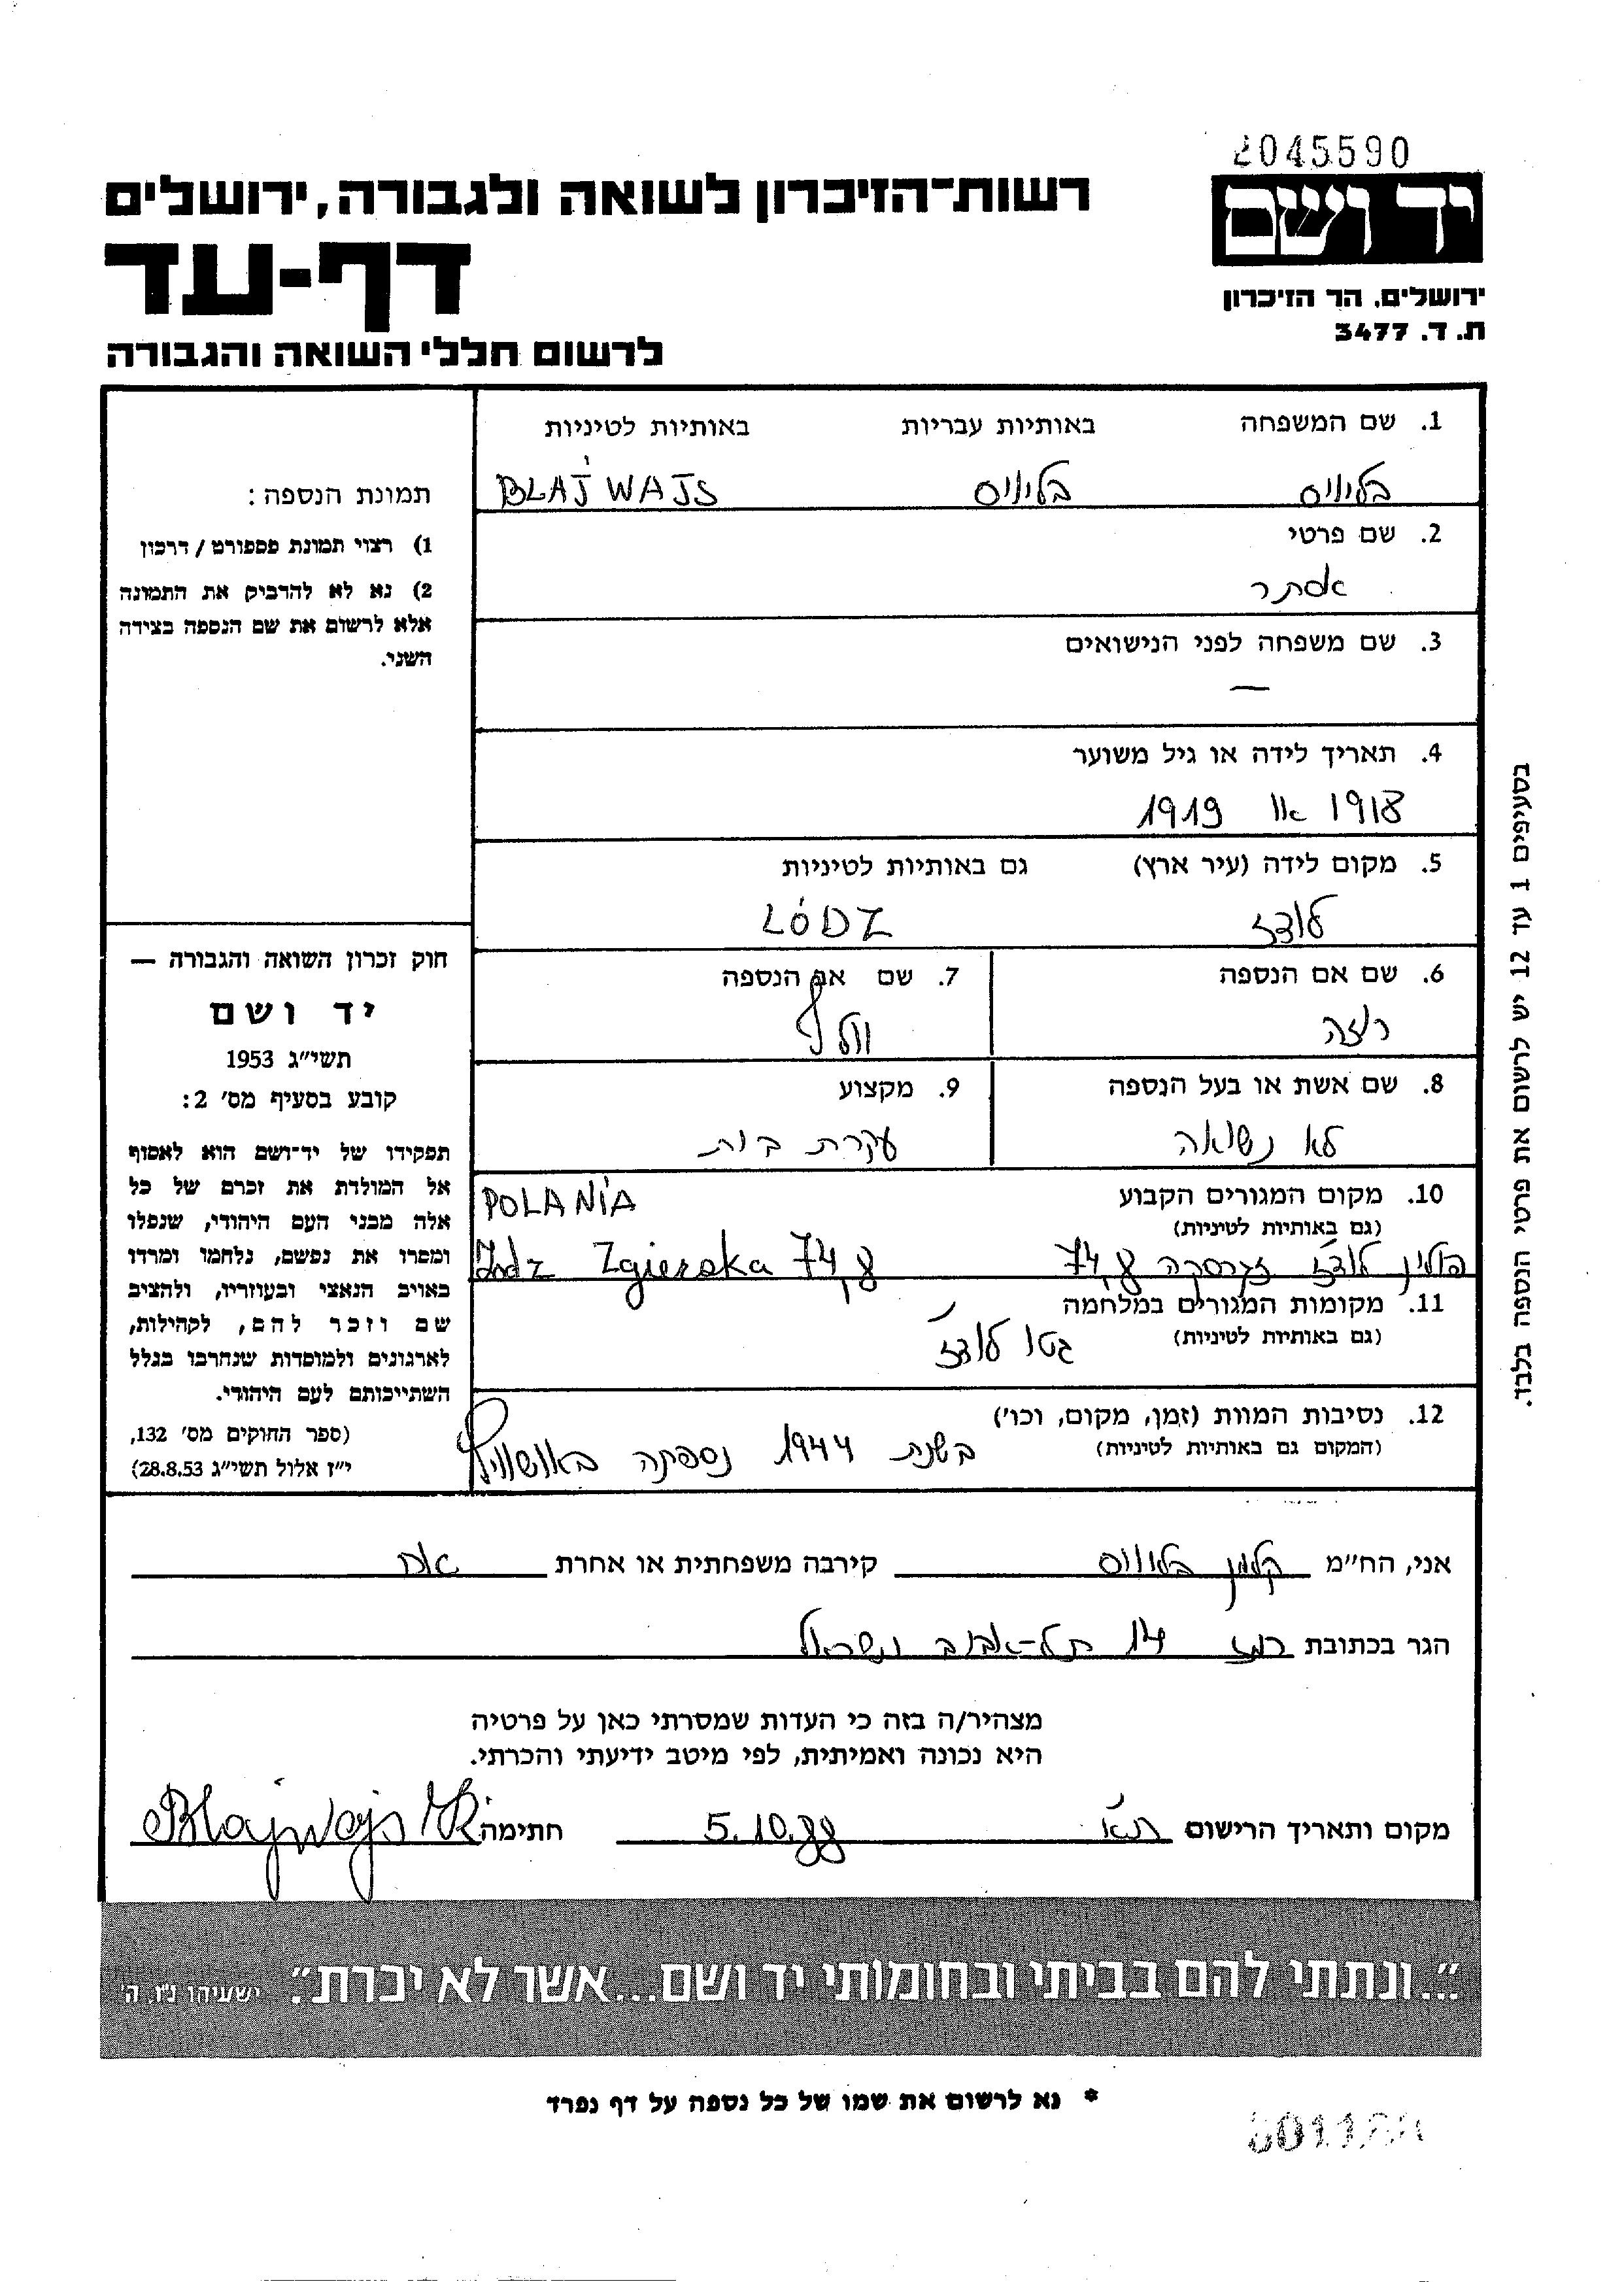 2045590
יד ושם
ירושלים, הר הזיכרון
ת. ד. 3477
רשות־הזיכרון לשואה ולגבורה, ירושלים
דף-עד
לרשום חללי השואה והגבורה
1. שם המשפחה באותיות עבריות באותיות לטיניות
בליווייס בליווייס BLAJWAJS
2. שם פרטי
אסתר
3. שם משפחה לפני הנישואים
—
4. תאריך לידה או גיל משוער
1918 או 1919
5. מקום לידה (עיר ארץ) גם באותיות לטיניות
לודז ŁÓDZ
6. שם אם הנספה 7. שם אב הנספה
רוזה וולף
8. שם אשת או בעל הנספה 9. מקצוע
לא נשואה עקרת בית
10. מקום המגורים הקבוע POLANIA
(גם באותיות לטיניות)
פולין לודז' זגרסקה 74, 8 Łodz Zgierska 74, 8
11. מקומות המגורים במלחמה
(גם באותיות לטיניות)
גטו לודז'
12. נסיבות המוות (זמן, מקום, וכו')
(המקום גם באותיות לטיניות)
בשנת 1944 נספתה באושוויץ
תמונת הנספה:
1) רצוי תמונת פספורט / דרכון
2) נא לא להדביק את התמונה
אלא לרשום את שם הנספה בצידה
השני.
חוק זכרון השואה והגבורה —
יד ושם
תשי״ג 1953
קובע בסעיף מס' 2:
תפקידו של יד־ושם הוא לאסוף
אל המולדת את זכרם של כל
אלה מבני העם היהודי, שנפלו
ומסרו את נפשם, נלחמו ומרדו
באויב הנאצי ובעוזריו, ולהציב
שם וזכר להם, לקהילות,
לארגונים ולמוסדות שנחרבו בגלל
השתייכותם לעם היהודי.
(ספר החוקים מס' 132,
י״ז אלול תשי״ג 28.8.53)
בסעיפים 1 עד 12 יש לרשום את פרטי הנספה בלבד.
אני, הח״מ קלמן בליווייס קירבה משפחתית או אחרת אח
הגר בכתובת רמז 14 תל-אביב ישראל
מצהיר/ה בזה כי העדות שמסרתי כאן על פרטיה
היא נכונה ואמיתית, לפי מיטב ידיעתי והכרתי.
מקום ותאריך הרישום ת״א 5.10.88 חתימה Blajwajs K
״...ונתתי להם בביתי ובחומותי יד ושם...אשר לא יכרת״. ישעיהו נ״ו, ה'
* נא לרשום את שמו של כל נספה על דף נפרד